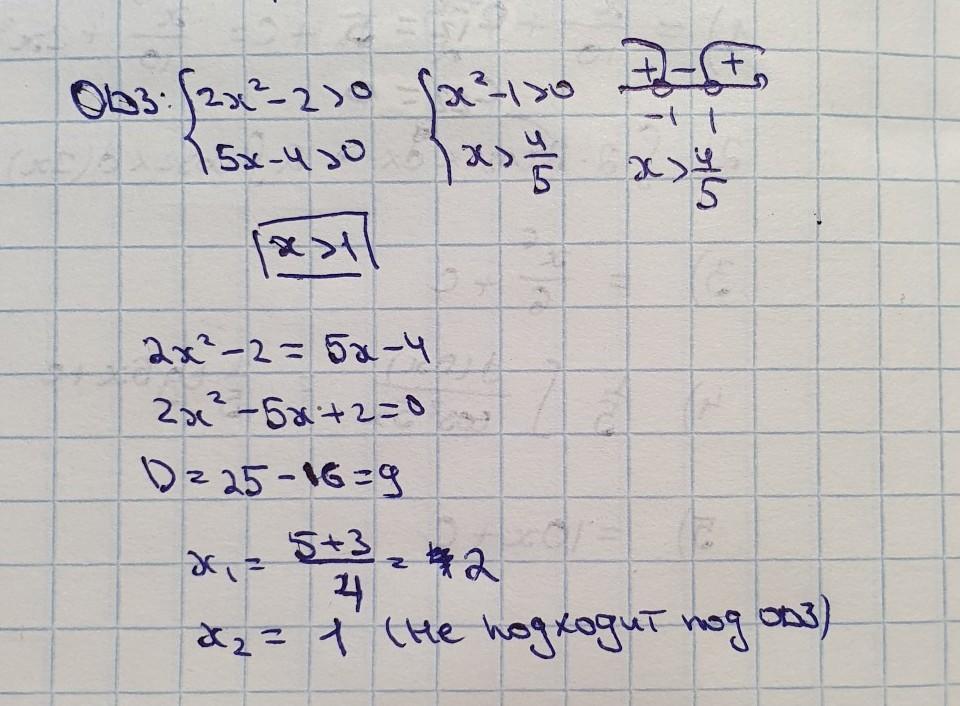 ОДЗ: { 2x² - 2 > 0 { x² - 1 > 0 + - +
5x - 4 > 0 x > 4/5 -1 1
x > 4/5
x > 1
2x² - 2 = 5x - 4
2x² - 5x + 2 = 0
D = 25 - 16 = 9
x₁ = (5+3)/4 = 2
x₂ = 1 (не подходит под ОДЗ)